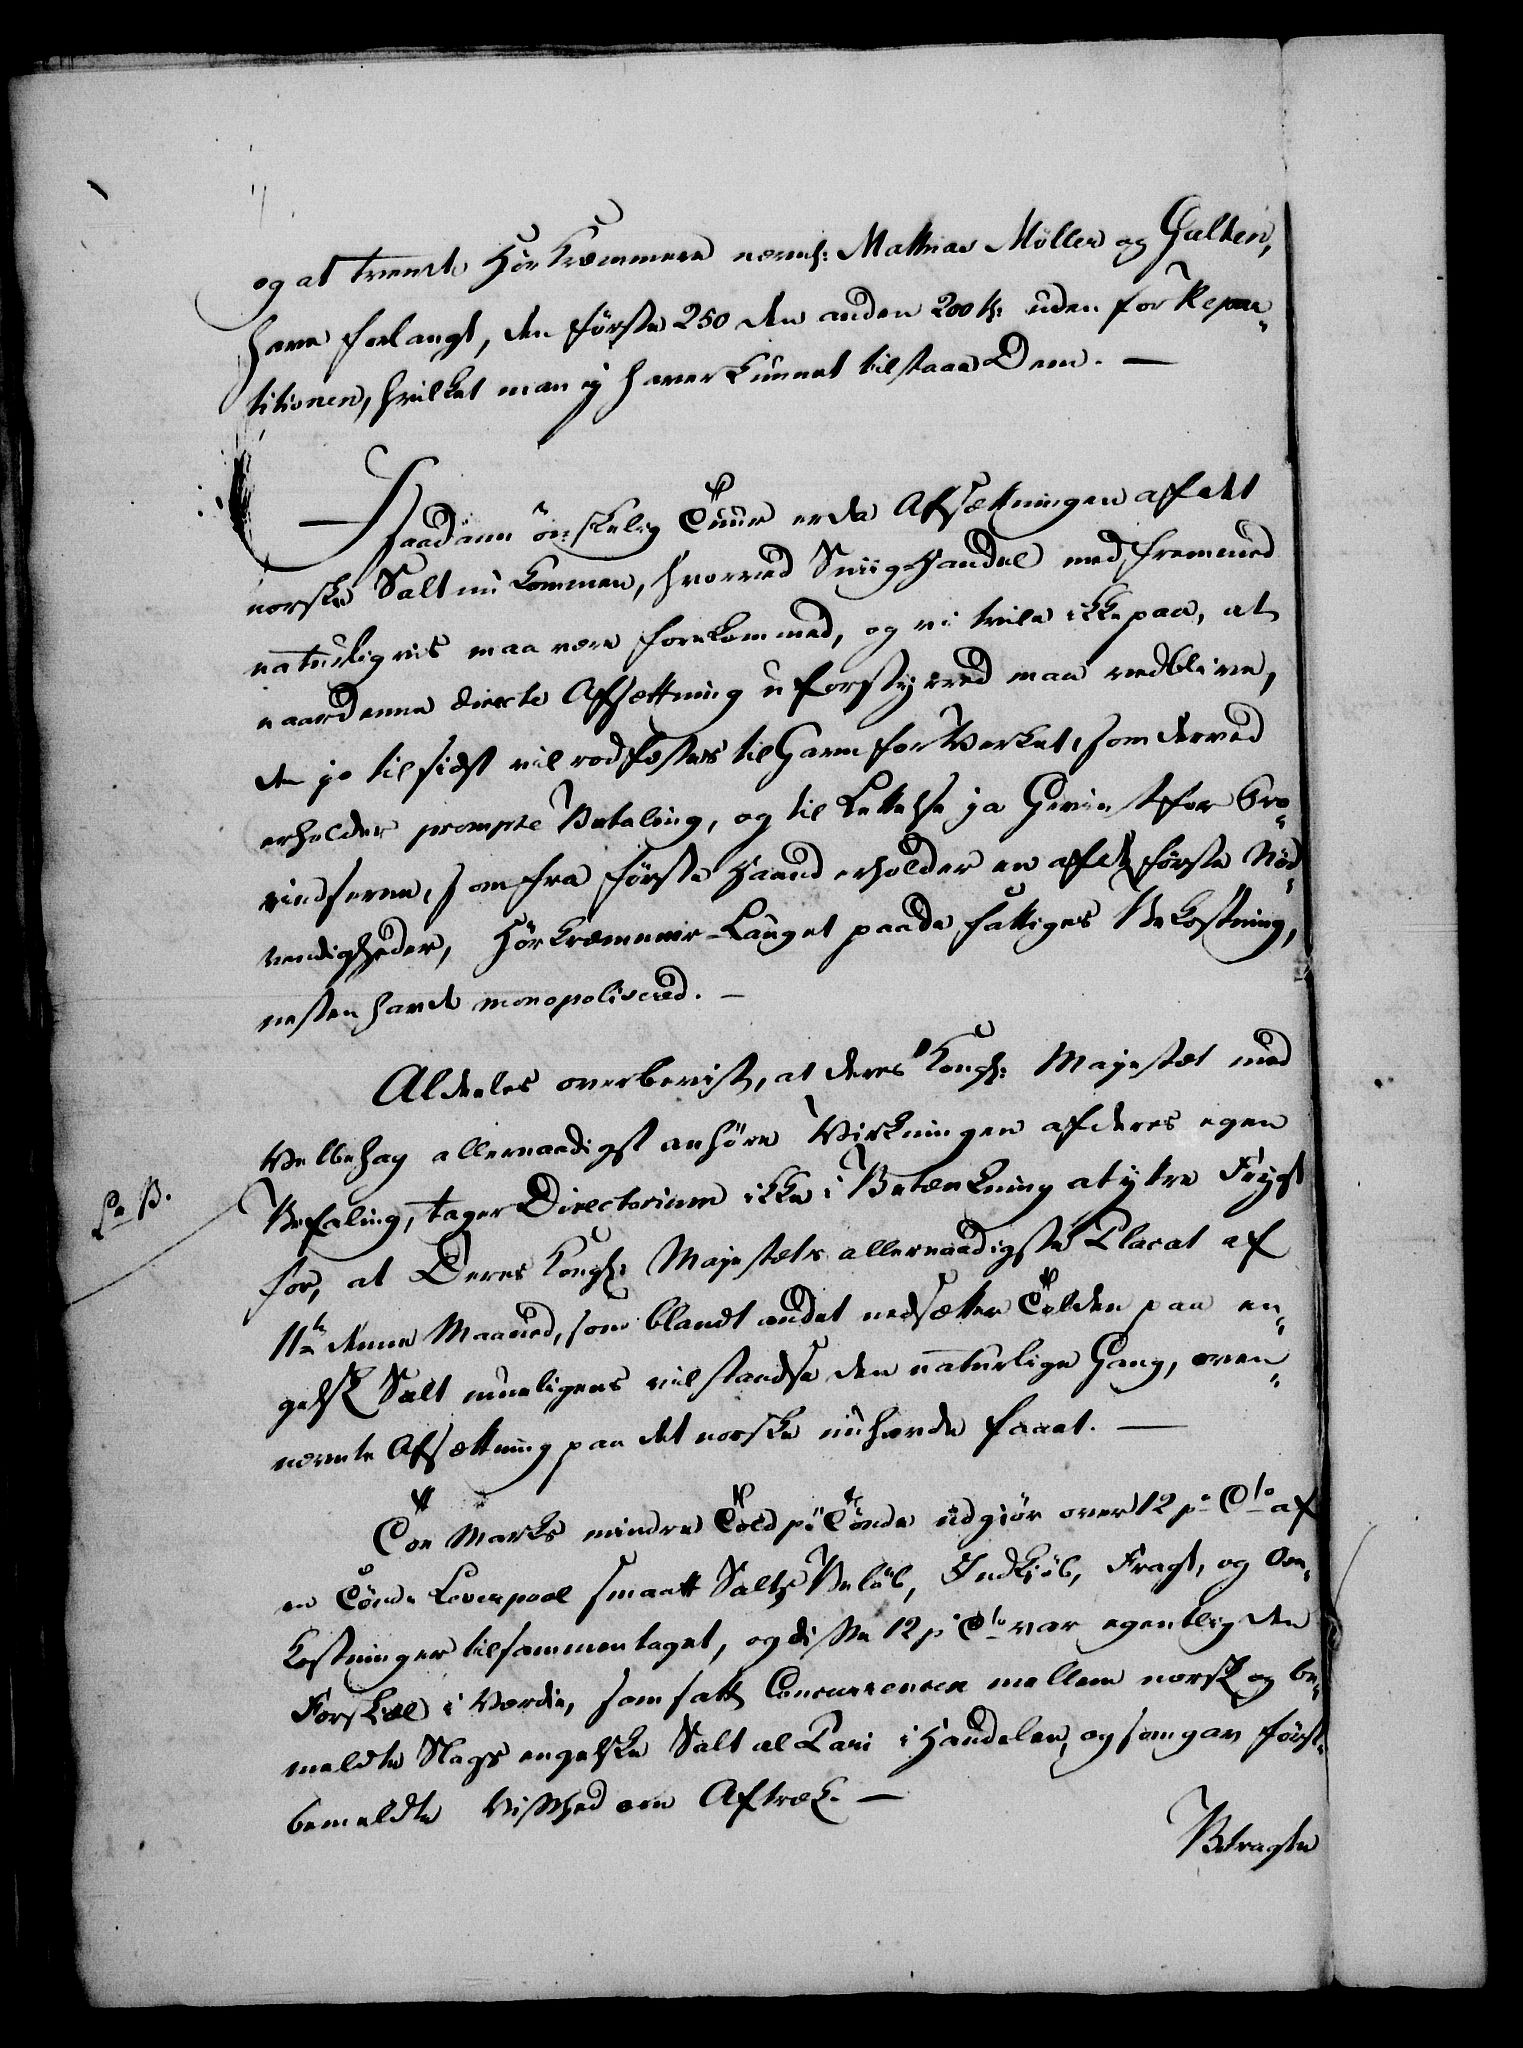 og at tvende Hörkræmmere nævnl: Mathias Möller og Galthen,
have forlangt, den förste 250 den anden 200 t: uden for Repar„
titionen, hvilket man ej haver kunnet tilstaae Dem. —
Saadann önskelig Cuur er da Afsætningen af det
norske Salt nu kommen, hvorved Sniighandel med fremmed
naturligviis maa være forekommed, og vi tvile ikke paa, at
naar denne directe Afsættning uforstyrred maa vedblive,
de jo tilsidst vil rodfæstes til Gavn for Værket, som derved
erholder prompte Betaling, og til Lettelse ja Gevinst for Pro„
vindserne, som fra förste Haand erholder en af de förste Nöd„
vendigheder, Hörkræmmer-Lauget paa de fattiges Bekostning,
nesten havde monopolisered. —
Aldeeles overbevist, at deres Kongl: Majestæt med
Velbehag allernaadigst anhöre Virkningen af deres egen
Befaling, tager Directorium ikke i Betænkning at yttre Frygt
for, at Deres Kongl: Majestæts allernaadigste Placat af
11te denne Maaned, som blandt andet nedsætter Tolden paa en„
gelsk Salt mueligens vil standse den naturlige Gang, oven„
nævnte Afsættning paa det norske nu havde faaet. —
L. B.
Toe Marks mindre Told pr Tönde udgiör over 12 p: Cto af
en Tönde Liverpool smaatt Salts Belöb, Indkiöb, Fragt, og Om„
kostninger tilsammentaget, og disse 12 p: Cto var egentlig den
Forskiæl i Værdie, som satte Concurrencen mellem norsk og be„
meldte Slags engelske Salt al Pari i Handelen, og som gav först„
bemeldte Visshed om Aftræk. —
Betragte